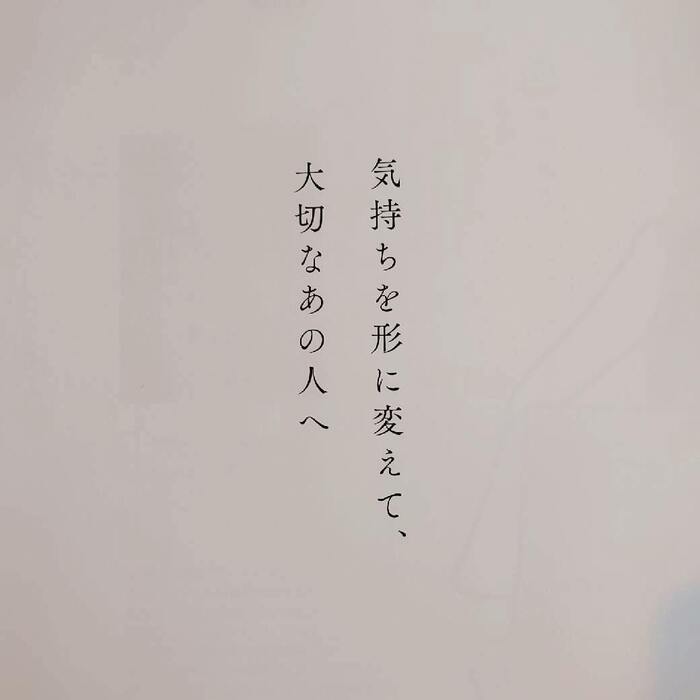 気持ちを形に変えて、
大切なあの人へ